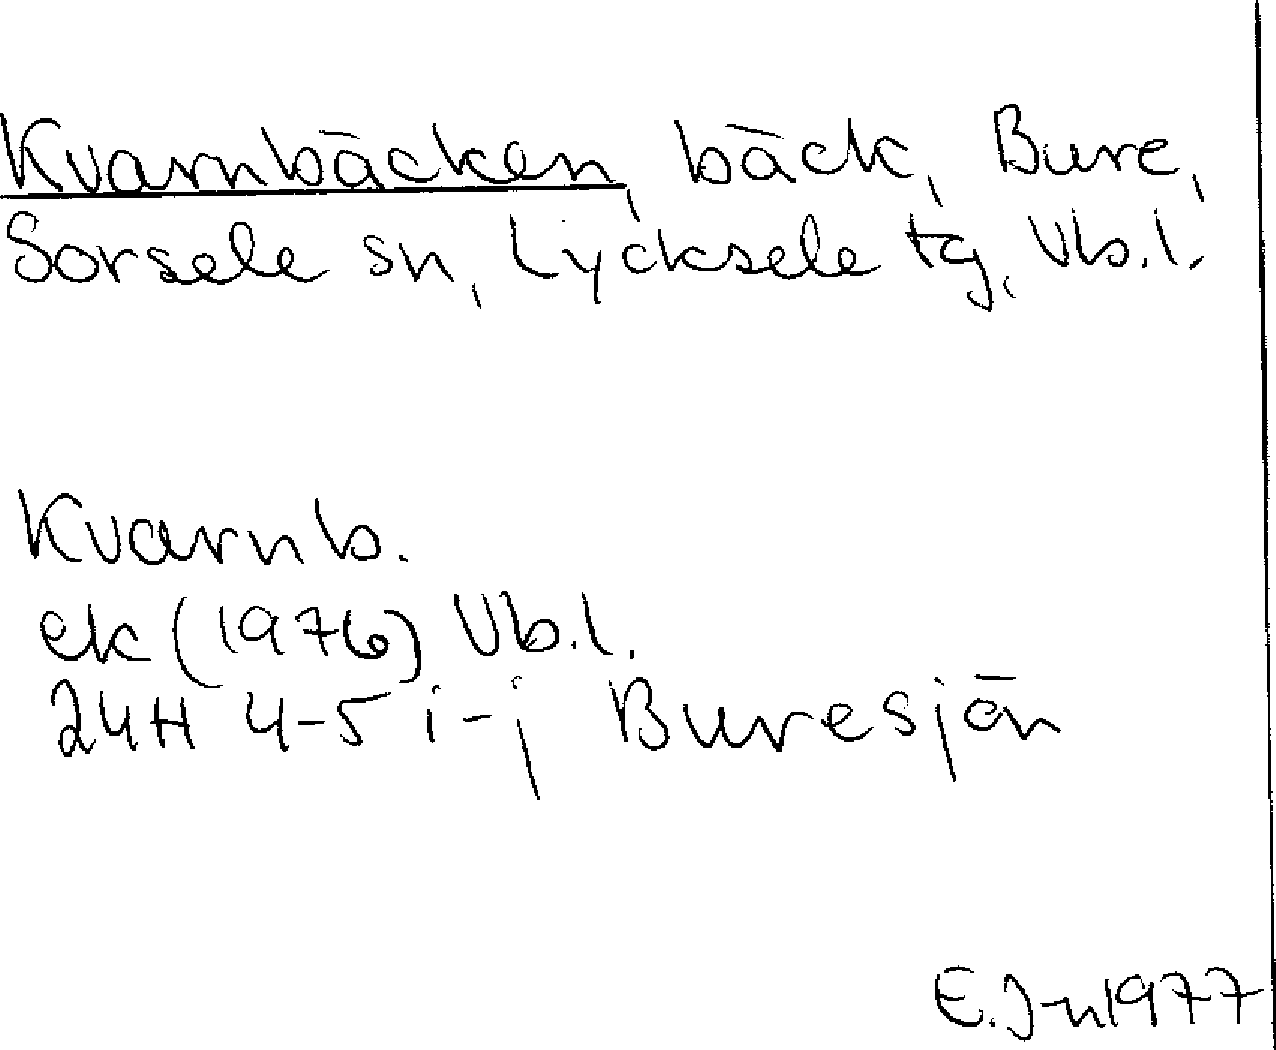 Kvarnbäcken, bäck, Bure,
Sorsele sn, Lycksele tg, Vb.l.
Kvarnb.
ek (1976) Vb.l.
24H 4-5 i-j Buresjön
E.J-n 1977